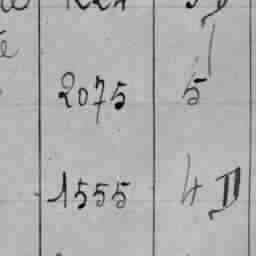 2075 5
1555 4 II